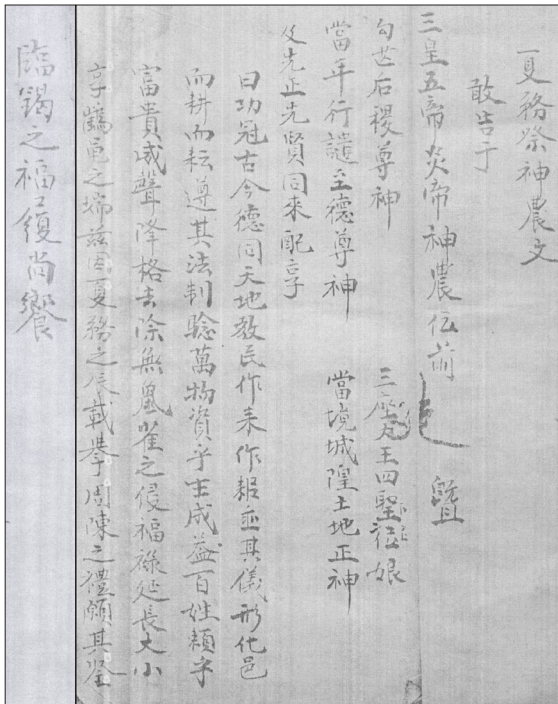 一夏務祭神農文
敢告于
三皇五帝炎帝神農位前 暨
勾芒后稷尊神 三座大王四聖娘娘
當年行譴至德尊神 當境城隍土地正神
及先正先賢同來配享
曰功冠古今德同天地教民作耒作耜並其儀形化邑
而耕而耘遵其法制驗萬物資乎生成益百姓賴乎
富貴咸聲降格去除無鼠雀之侵福祿延長大小
享之瑞茲因夏務之辰載擧周陳之禮願其鉴
臨錫之福履尚饗